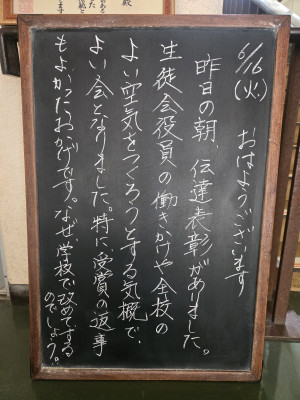 6/16(火)
おはようございます
昨日の朝、伝達表彰がありました。
生徒会役員の働きかけや全校の
よい空気をつくろうとする気概で、
よい会となりました。特に受賞の返事
もよかったおかげです。なぜ学校で改めてする
のでしょう。
殿